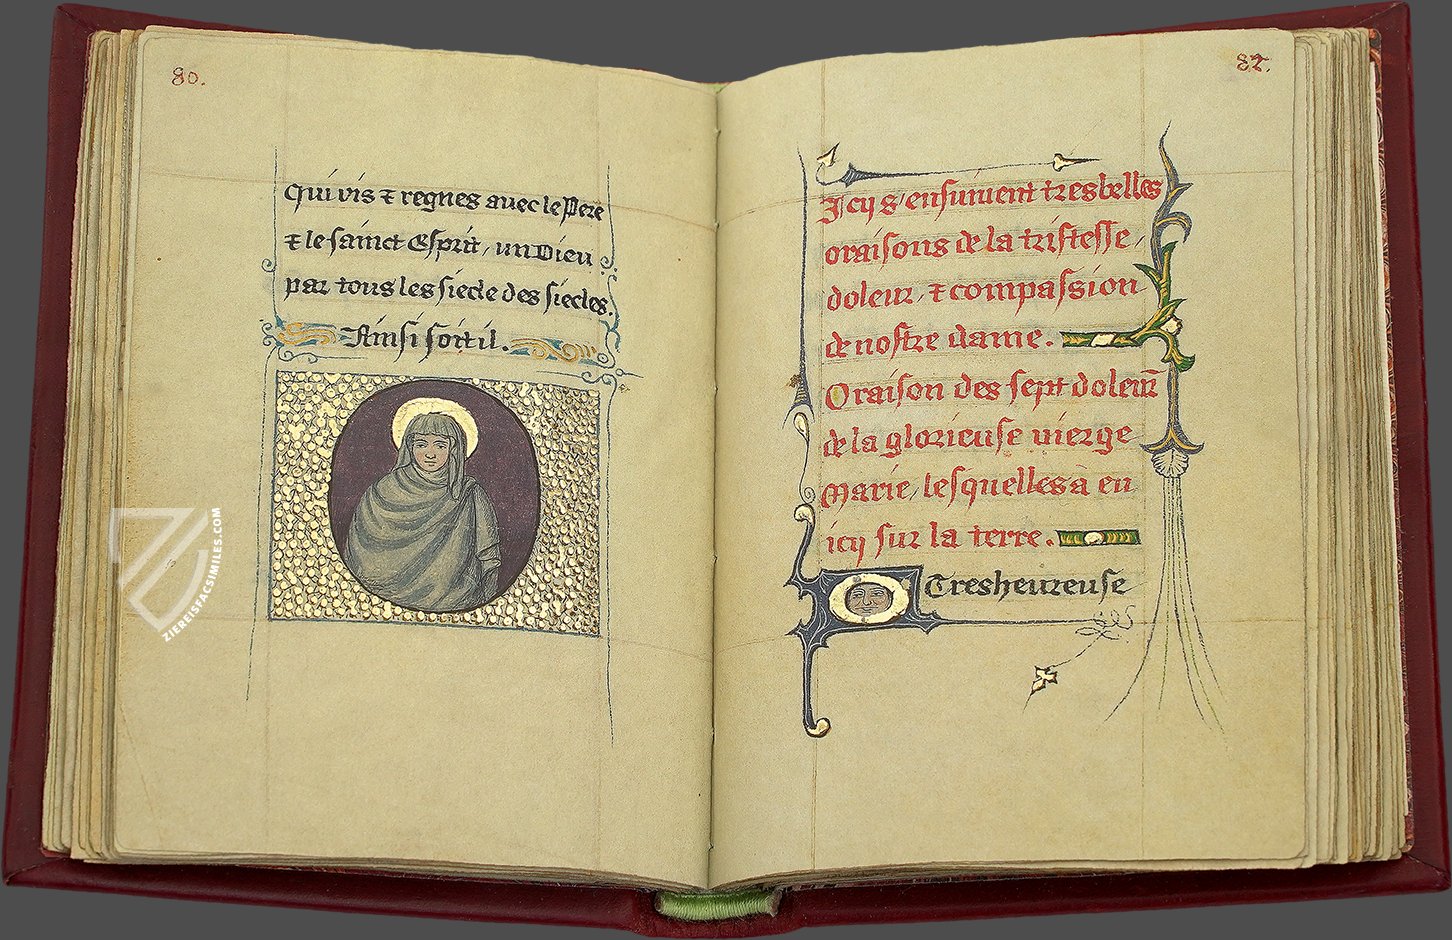 80.
Qui vis & regnes avec le Pere
& le sainct Esprit, un Dieu
par tous les siecle des siecles.
Ainsi soit il.
ZIEREISFACSIMILES.COM
82.
Icy s'ensuivent tresbelles
oraisons de la tristesse,
doleur, & compassion
de nostre dame.
Oraison des sept doleurs
de la glorieuse vierge
Marie, lesquelles à eu
icy sur la terre.
O Tresheureuse